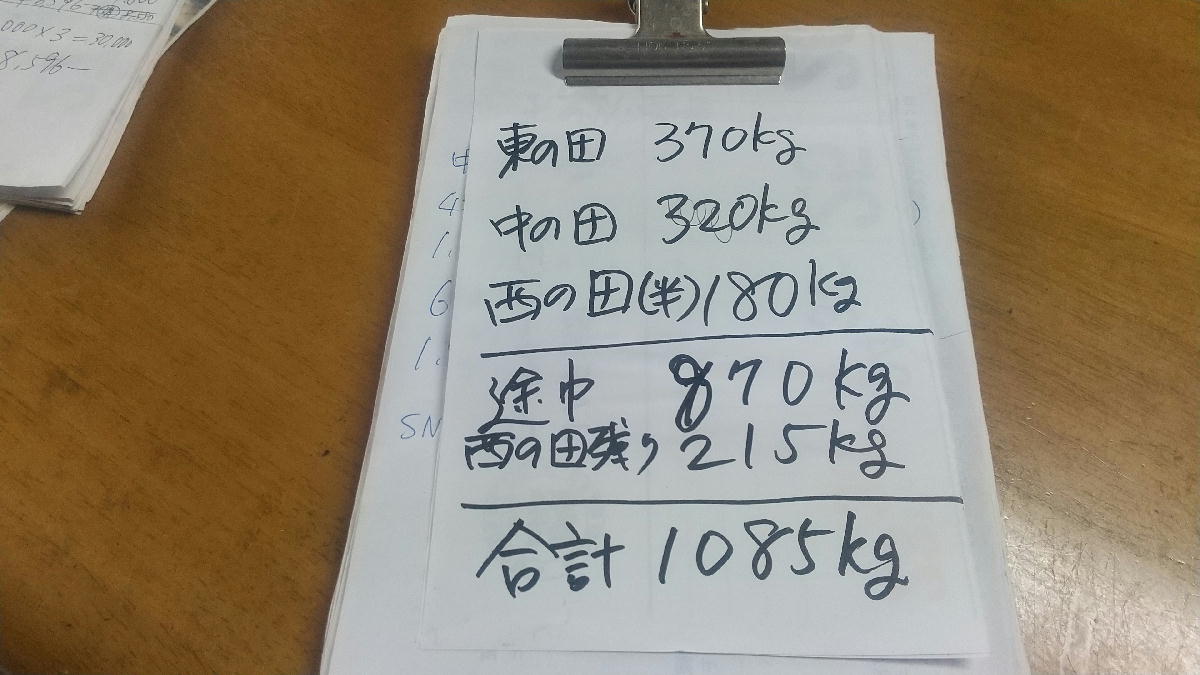 000×3=30,000
8,596ー
東の田 370kg
中の田 320kg
西の田(半)180kg
途中 870kg
西の田残り 215kg
合計 1085kg
SN